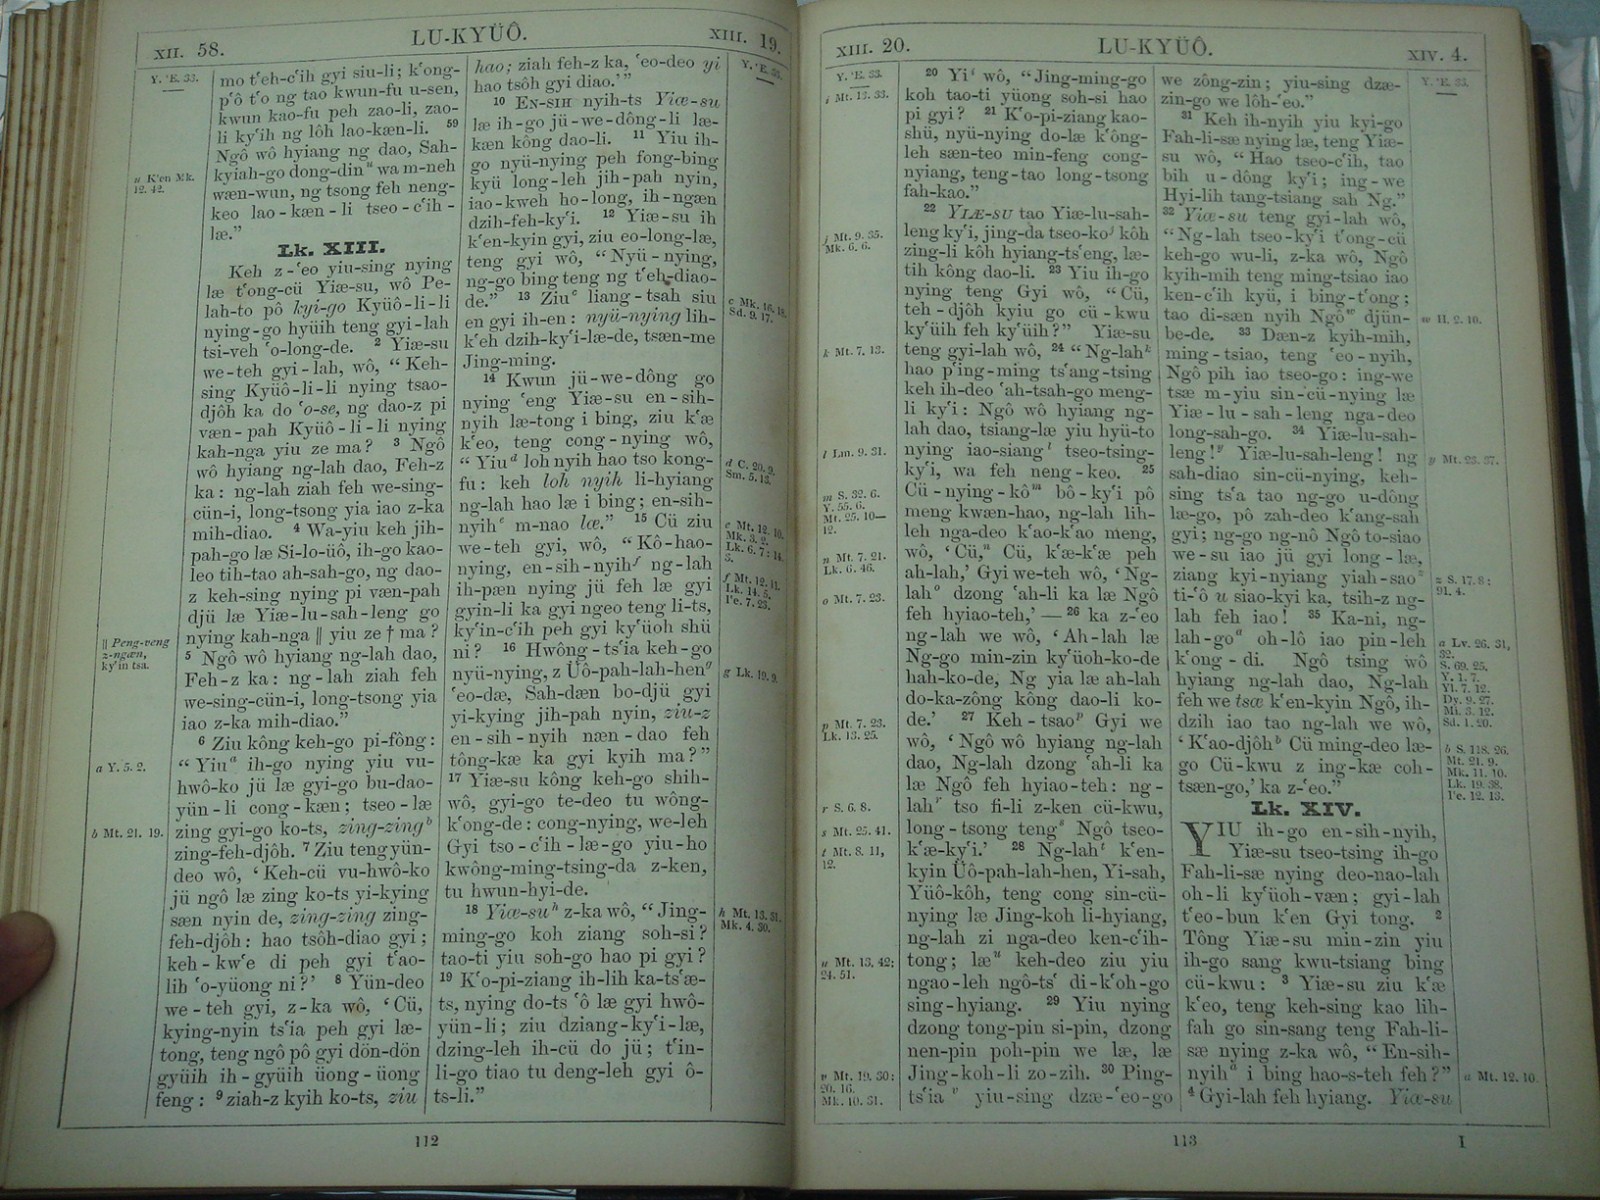 XII. 58.
LU-KYÜÔ.
XIII. 19.
Y. ʻE. 33.
u K'en Mk.
12. 42.
|| Peng-veng
z-ngæn,
ky'in tsa.
a Y. 5. 2.
b Mt. 21. 19.
mo t'eh-c'ih gyi siu-li; k'ong-
p'ô t'o ng tao kwun-fu u-sen,
kwun kao-fu peh zao-li, zao-
li ky'ih ng lôh lao-kæn-li. 59
Ngô wô hyiang ng dao, Sah-
kyiah-go dong-din u wa m-neh
wæn-wun, ng tsong feh neng-
keo lao-kæn-li tseo-c'ih-
læ.”
Lk. XIII.
Keh z-ʻeo yiu-sing nying
læ t'ong-cü Yiæ-su, wô Pe-
lah-to pô kyi-go Kyüô-li-li
nying-go hyüih teng gyi-lah
tsi-veh ʻo-long-de. 2 Yiæ-su
we-teh gyi-lah, wô, “Keh-
sing Kyüô-li-li nying tsao-
djôh ka do ʻo-se, ng dao-z pi
væn-pah Kyüô-li-li nying
kah-nga yiu ze ma? 3 Ngô
wô hyiang ng-lah dao, Feh-z
ka: ng-lah ziah feh we-sing-
cün-i, long-tsong yia iao z-ka
mih-diao. 4 Wa-yiu keh jih-
pah-go læ Si-lo-üô, ih-go kao-
leo tih-tao ah-sah-go, ng dao-
z keh-sing nying pi væn-pah
djü læ Yiæ-lu-sah-leng go
nying kah-nga || yiu ze † ma?
5 Ngô wô hyiang ng-lah dao,
Feh-z ka: ng-lah ziah feh
we-sing-cün-i, long-tsong yia
iao z-ka mih-diao.”
6 Ziu kông keh-go pi-fông:
“Yiu a ih-go nying yiu vu-
hwô-ko jü læ gyi-go bu-dao-
yün-li cong-kæn; tseo-læ
zing gyi-go ko-ts, zing-zing b
zing-feh-djôh. 7 Ziu teng yün-
deo wô, ‘Keh-cü vu-hwô-ko
jü ngô læ zing ko-ts yi-kying
sæn nyin de, zing-zing zing-
feh-djôh: hao tsôh-diao gyi;
keh-kw'e di peh gyi t'ao-
lih ʻo-yüong ni?’ 8 Yün-deo
we-teh gyi, z-ka wô, ‘Cü,
kying-nyin ts'ia peh gyi læ-
tong, teng ngô pô gyi dön-dön
gyüih ih-gyüih üong-üong
feng: 9 ziah-z kyih ko-ts, ziu
hao; ziah feh-z ka, ʻeo-deo yi
hao tsôh gyi diao.’”
10 EN-SIH nyih-ts Yiæ-su
læ ih-go jü-we-dông-li læ-
kæn kông dao-li. 11 Yiu ih-
go nyü-nying peh fong-bing
kyü long-leh jih-pah nyin,
iao-kweh ho-long, ih-ngæn
dzih-feh-ky'i. 12 Yiæ-su ih
k'en-kyin gyi, ziu eo-long-læ,
teng gyi wô, “Nyü-nying,
ng-go bing teng ng t'eh-diao-
de.” 13 Ziu c liang-tsah siu
en gyi ih-en: nyü-nying lih-
k'eh dzih-ky'i-læ-de, tsæn-me
Jing-ming.
14 Kwun jü-we-dông go
nying ʻeng Yiæ-su en-sih-
nyih læ-tong i bing, ziu k'æ
k'eo, teng cong-nying wô,
“Yiu d loh nyih hao tso kong-
fu: keh loh nyih li-hyiang
ng-lah hao læ i bing; en-sih-
nyih e m-nao læ.” 15 Cü ziu
we-teh gyi, wô, “Kô-hao-
nying, en-sih-nyih f ng-lah
ih-pæn nying jü feh læ gyi
gyin-li ka gyi ngeo teng li-ts,
ky'in-c'ih peh gyi ky'üoh shü
ni? 16 Hwông-ts'ia keh-go
nyü-nying, z Üô-pah-lah-hen g
ʻeo-dæ, Sah-dæn bo-djü gyi
yi-kying jih-pah nyin, ziu-z
en-sih-nyih næn-dao feh
tông-kæ ka gyi kyih ma?”
17 Yiæ-su kông keh-go shih-
wô, gyi-go te-deo tu wông-
k'ong-de: cong-nying, we-leh
Gyi tso-c'ih-læ-go yiu-ho
kwông-ming-tsing-da z-ken,
tu hwun-hyi-de.
18 Yiæ-su h z-ka wô, “Jing-
ming-go koh ziang soh-si?
tao-ti yiu soh-go hao pi gyi?
19 K'o-pi-ziang ih-lih ka-ts'æ-
ts, nying do-ts ʻô læ gyi hwô-
yün-li; ziu dziang-ky'i-læ,
dzing-leh ih-cü do jü; t'in-
li-go tiao tu deng-leh gyi ô-
ts-li.”
c Mk. 16. 18.
Sd. 9. 17.
d C. 20. 9.
Sm. 5. 13.
e Mt. 12. 10.
Mk. 3. 2.
Lk. 6. 7; 14.
3.
f Mt. 12. 11.
Lk. 14. 5.
Pe. 7. 23.
g Lk. 19. 9.
h Mt. 13. 31.
Mk. 4. 30.
112
XIII. 20.
LU-KYÜÔ.
XIV. 4.
Y. ʻE. 33.
i Mt. 13. 33.
j Mt. 9. 35.
Mk. 6. 6.
k Mt. 7. 13.
l Lm. 9. 31.
m S. 32. 6.
Y. 55. 6.
Mt. 25. 10—
12.
n Mt. 7. 21.
Lk. 6. 46.
o Mt. 7. 23.
p Mt. 7. 23.
Lk. 13. 25.
r S. 6. 8.
s Mt. 25. 41.
t Mt. 8. 11,
12.
u Mt. 13. 42;
24. 51.
v Mt. 19. 30;
20. 16.
Mk. 10. 31.
20 Yi i wô, “Jing-ming-go
koh tao-ti yüong soh-si hao
pi gyi? 21 K'o-pi-ziang kao-
shü, nyü-nying do-læ k'ông-
leh sæn-teo min-feng cong-
nyiang, teng-tao long-tsong
fah-kao.”
22 YIÆ-SU tao Yiæ-lu-sah-
leng ky'i, jing-da tseo-ko j kôh
zing-li kôh hyiang-ts'eng, læ-
tih kông dao-li. 23 Yiu ih-go
nying teng Gyi wô, “Cü,
teh-djôh kyiu go cü-kwu
ky'üih feh ky'üih?” Yiæ-su
teng gyi-lah wô, 24 “Ng-lah k
hao p'ing-ming ts'ang-tsing
keh ih-deo ʻah-tsah-go meng-
li ky'i: Ngô wô hyiang ng-
lah dao, tsiang-læ yiu hyü-to
nying iao-siang l tseo-tsing-
ky'i, wa feh neng-keo. 25
Cü-nying-kô m bô-ky'i pô
meng kwæn-hao, ng-lah lih-
leh nga-deo k'ao-k'ao meng,
wô, ‘Cü, n Cü, k'æ-k'æ peh
ah-lah,’ Gyi we-teh wô, ‘Ng-
lah o dzong ʻah-li ka læ Ngô
feh hyiao-teh,’—26 ka z-ʻeo
ng-lah we wô, ‘Ah-lah læ
Ng-go min-zin ky'üoh-ko-de
hah-ko-de, Ng yia læ ah-lah
do-ka-zông kông dao-li ko-
de.’ 27 Keh-tsao p Gyi we
wô, ‘Ngô wô hyiang ng-lah
dao, Ng-lah dzong ʻah-li ka
læ Ngô feh hyiao-teh: ng-
lah r tso fi-li z-ken cü-kwu,
long-tsong teng s Ngô tseo-
k'æ-ky'i.’ 28 Ng-lah t k'en-
kyin Üô-pah-lah-hen, Yi-sah,
Yüô-kôh, teng cong sin-cü-
nying læ Jing-koh li-hyiang,
ng-lah zi nga-deo ken-c'ih-
tong; læ u keh-deo ziu yiu
ngao-leh ngô-ts' di-k'oh-go
sing-hyiang. 29 Yiu nying
dzong tong-pin si-pin, dzong
nen-pin poh-pin we læ, læ
Jing-koh-li zo-zih. 30 Ping-
ts'ia v yiu-sing dzæ-ʻeo-go
we zông-zin; yiu-sing dzæ-
zin-go we lôh-ʻeo.”
31 Keh ih-nyih yiu kyi-go
Fah-li-sæ nying læ, teng Yiæ-
su wô, “Hao tseo-c'ih, tao
bih u-dông ky'i; ing-we
Hyi-lih tang-tsiang sah Ng.”
32 Yiæ-su teng gyi-lah wô,
“Ng-lah tseo-ky'i t'ong-cü
keh-go wu-li, z-ka wô, Ngô
kyih-mih teng ming-tsiao iao
ken-c'ih kyü, i bing-t'ong;
tao di-sæn nyih Ngô w djün-
be-de. 33 Dæn-z kyih-mih,
ming-tsiao, teng ʻeo-nyih,
Ngô pih iao tseo-go: ing-we
tsæ m-yiu sin-cü-nying læ
Yiæ-lu-sah-leng nga-deo
long-sah-go. 34 Yiæ-lu-sah-
leng! y Yiæ-lu-sah-leng! ng
sah-diao sin-cü-nying, keh-
sing ts'a tao ng-go u-dông
læ-go, pô zah-deo k'ang-sah
gyi; ng-go ng-nô Ngô to-siao
we-su iao jü gyi long-læ,
ziang kyi-nyiang yiah-sao z
ti-ʻô u siao-kyi ka, tsih-z ng-
lah feh iao! 35 Ka-ni, ng-
lah-go a oh-lô iao pin-leh
k'ong-di. Ngô tsing wô
hyiang ng-lah dao, Ng-lah
feh we tsæ k'en-kyin Ngô, ih-
dzih iao tao ng-lah we wô,
‘K'ao-djôh b Cü ming-deo læ-
go Cü-kwu z ing-kæ coh-
tsæn-go,’ ka z-ʻeo.”
Lk. XIV.
YIU ih-go en-sih-nyih,
Yiæ-su tseo-tsing ih-go
Fah-li-sæ nying deo-nao-lah
oh-li ky'üoh-væn; gyi-lah
t'eo-bun k'en Gyi tong. 2
Tông Yiæ-su min-zin yiu
ih-go sang kwu-tsiang bing
cü-kwu: 3 Yiæ-su ziu k'æ
k'eo, teng keh-sing kao lih-
fah go sin-sang teng Fah-li-
sæ nying z-ka wô, “En-sih-
nyih a i bing hao-s-teh feh?”
4 Gyi-lah feh hyiang. Yiæ-su
Y. ʻE. 33.
w H. 2. 10.
y Mt. 23. 37.
z S. 17. 8;
91. 4.
a Lv. 26. 31,
32.
S. 69. 25.
Y. 1. 7.
Yl. 7. 12.
Dy. 9. 27.
Mi. 3. 12.
Sd. 1. 20.
b S. 118. 26.
Mt. 21. 9.
Mk. 11. 10.
Lk. 19. 38.
Pe. 12. 13.
a Mt. 12. 10.
113
I